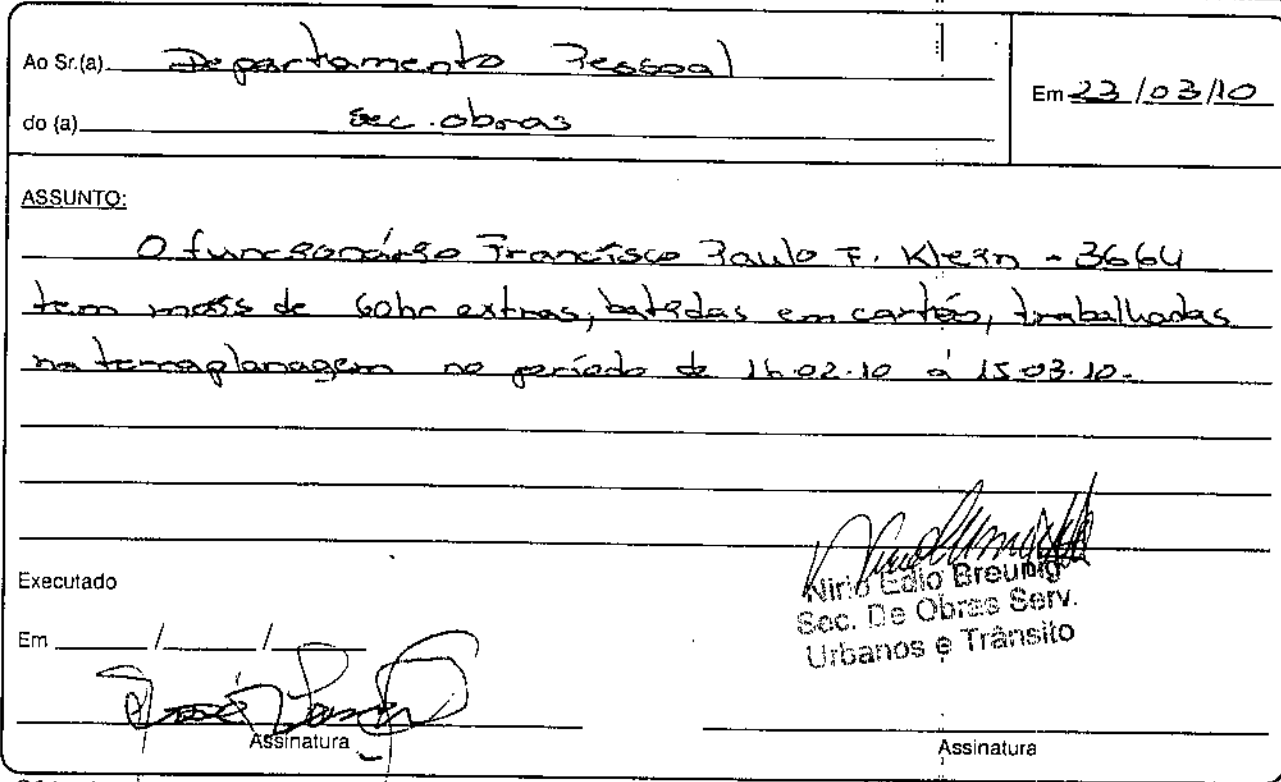 Ao Sr.(a) Departamento Pessoal
do (a) sec. obras
Em 23/03/10
ASSUNTO:
O funcionário Francisco Paulo F. Klein - 3664
tem mais de 60hr extras, batidas em cartão, trabalhadas
na terraplanagem no período de 16.02.10 á 15.03.10.
Executado
Em ____/____/____
Nirio Edio Breunig
Sec. De Obras Serv.
Urbanos e Trânsito
Assinatura
Assinatura